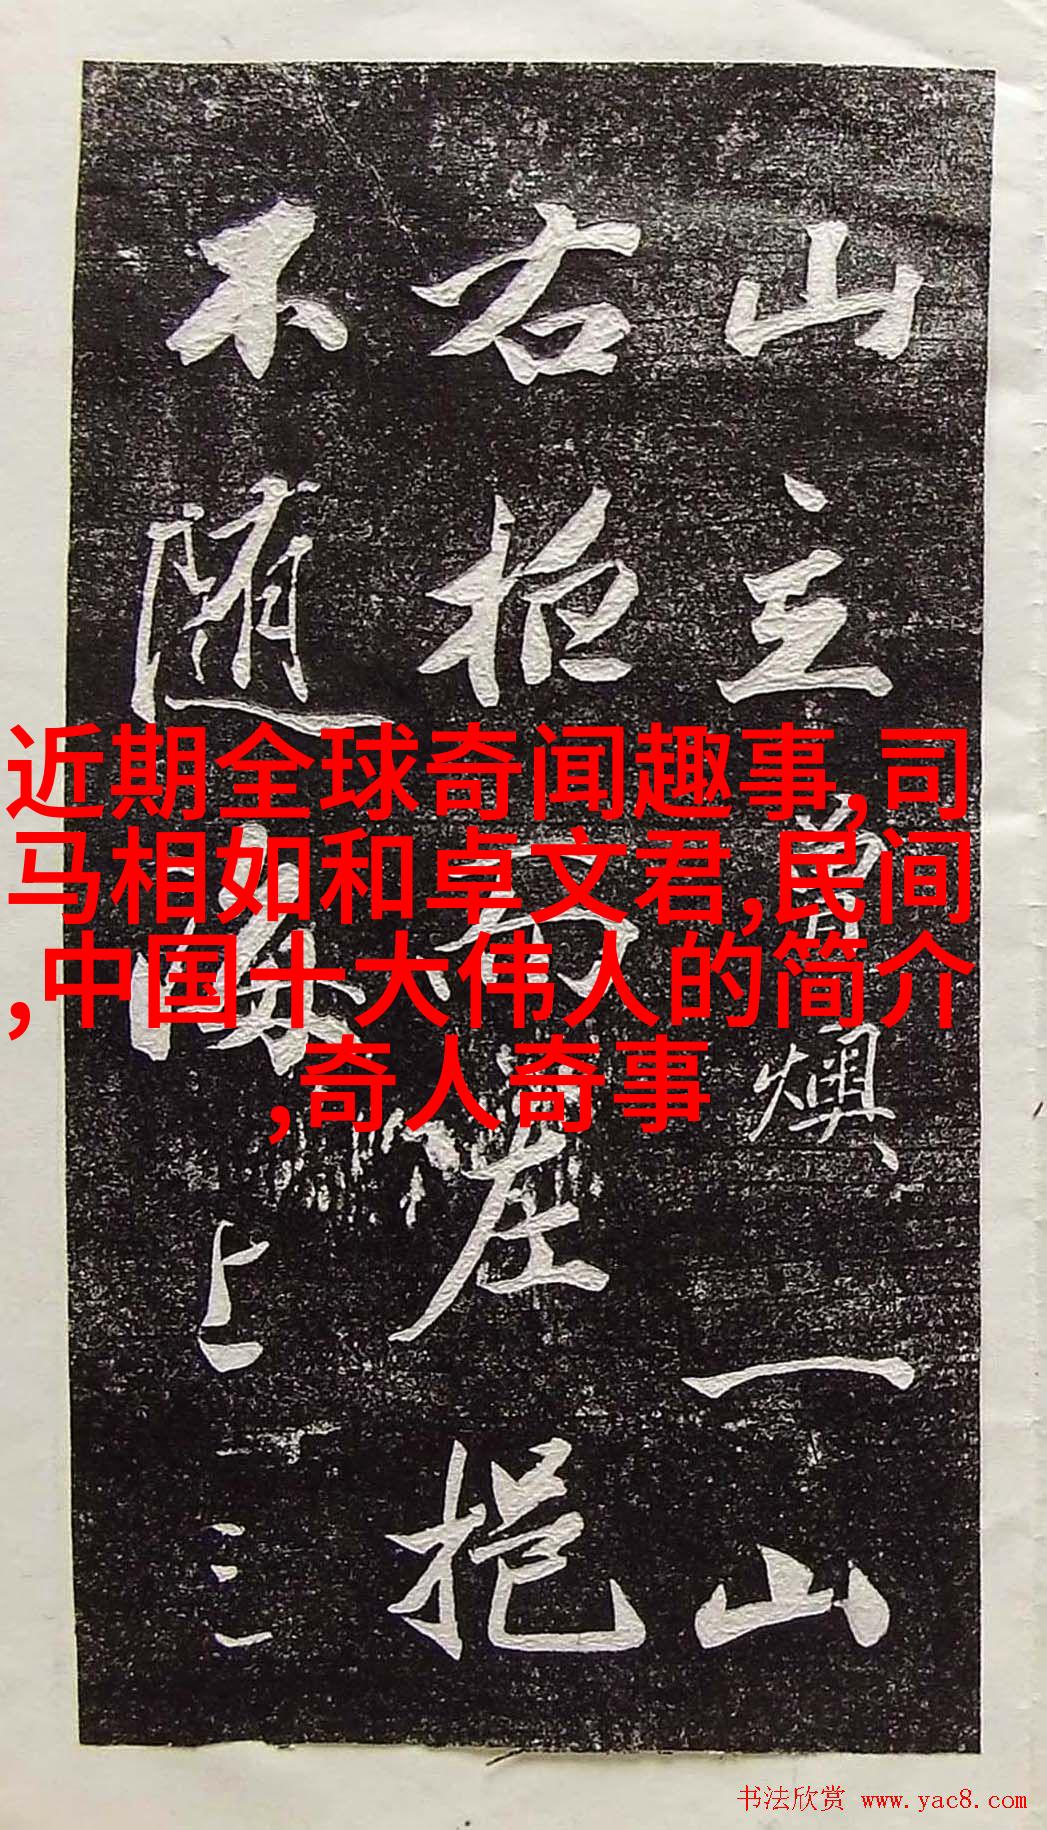 山主曾燠、一山
右挹
而左挹
不随
上三
近期全球奇闻趣事,司
马相如和卓文君,民间
,中国十大伟人的简介
,奇人奇事
书法欣赏 www.yac8.com